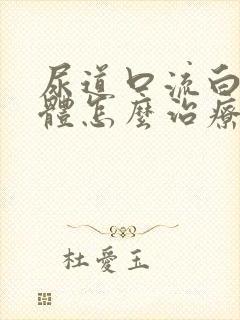 尿道口流白
體怎麼治療
杜愛玉